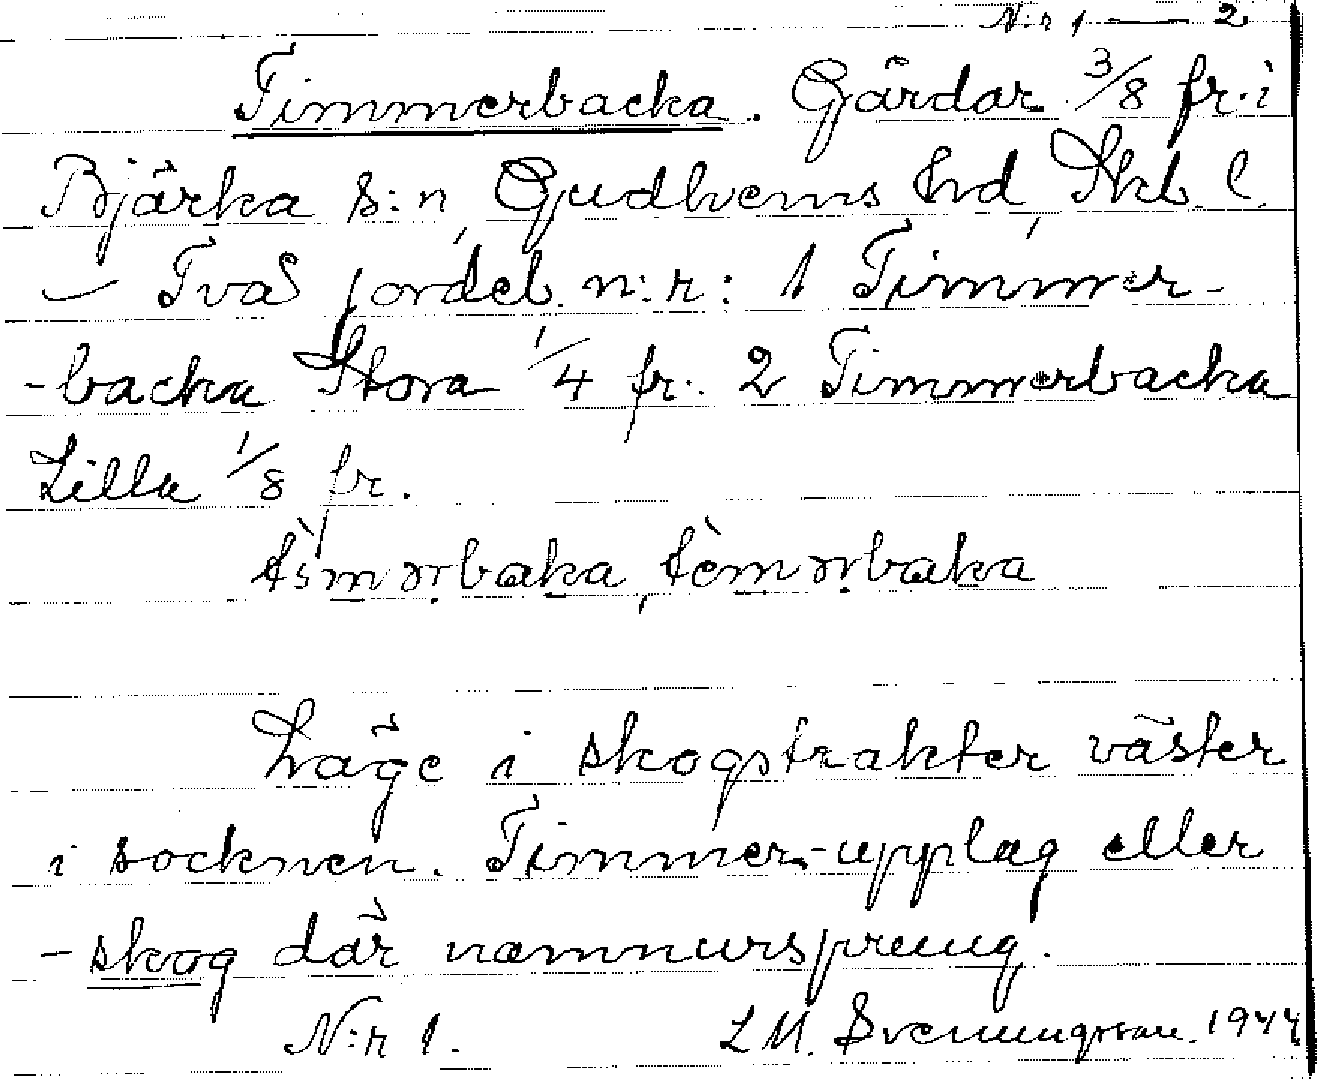 N:r 1 — 2
Timmerbacka. Gårdar 3/8 fr. i
Bjärka s:n, Gudhems hd, Skb. l.
— Två jordeb. n:r: 1 Timmer-
-backa Stora 1/4 fr. 2 Timmerbacka
Lilla 1/8 fr.
tìmərbaka, tèmərbaka
Läge i skogstrakter väster
i socknen. Timmer-upplag eller
-skog där namnursprung.
N:r 1. L M. Svenungsson. 1944